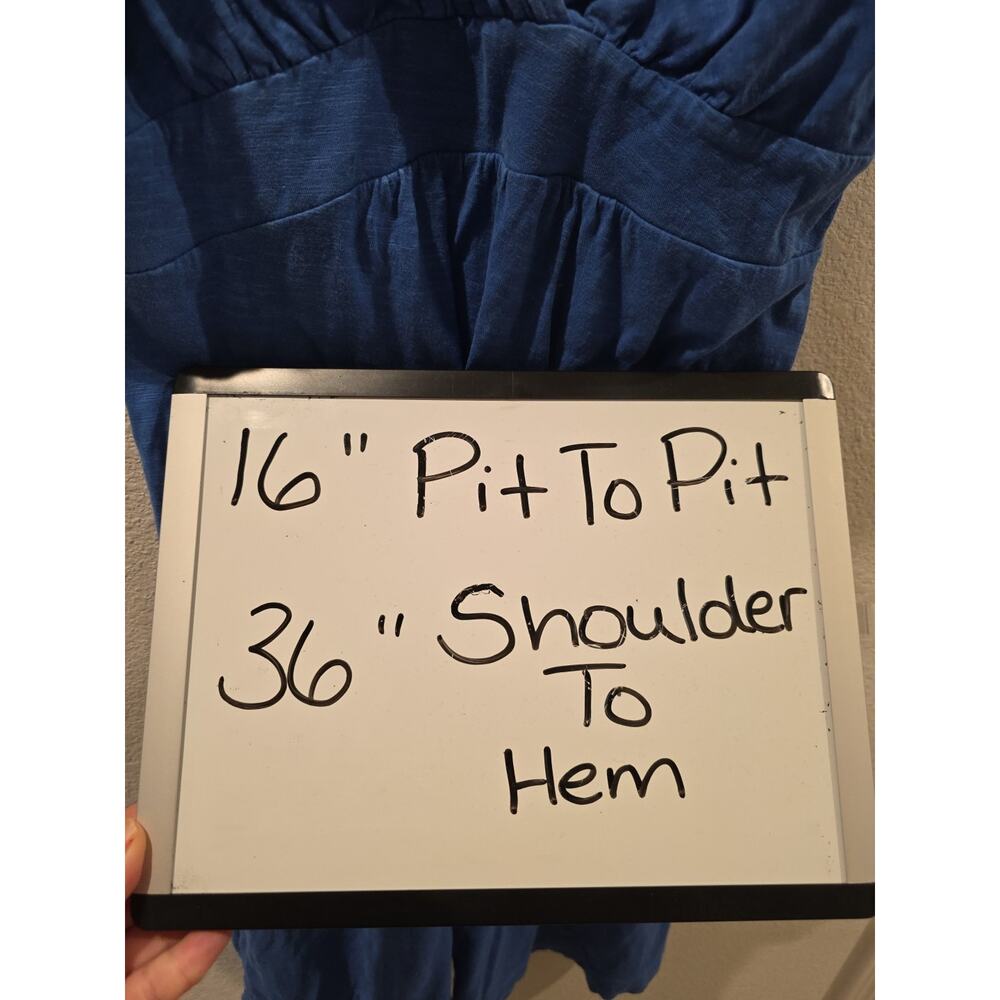 16" Pit To Pit
36" Shoulder
To
Hem